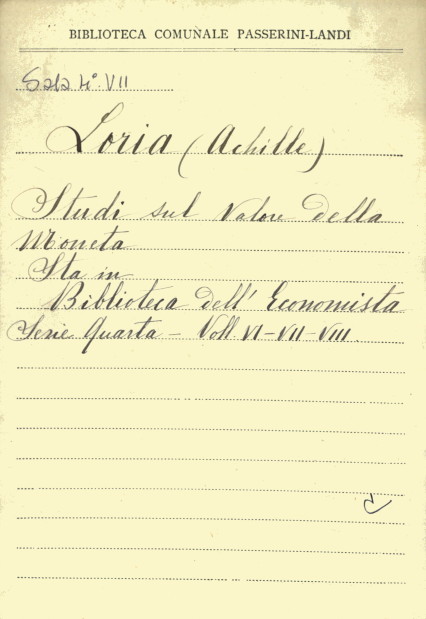 BIBLIOTECA COMUNALE PASSERINI-LANDI
Sala N° VII
Loria (Achille)
Studi sul valore della
Moneta
Sta in
Biblioteca dell' Economista
Serie Quarta - Voll. VI-VII-VIII.